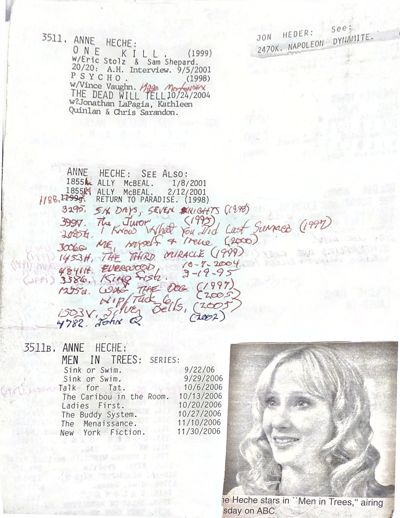 3511. ANNE HECHE:
ONE KILL. (1999)
w/Eric Stolz & Sam Shepard.
20/20: A.H. Interview. 9/5/2001
PSYCHO. (1998)
w/Vince Vaughn. Viggo Mortensen
THE DEAD WILL TELL 10/24/2004
w?Jonathan LaPagia, Kathleen
Quinlan & Chris Sarandon.
JON HEDER: See:
2470K. NAPOLEON DYNAMITE.
ANNE HECHE: SEE ALSO:
1855L ALLY McBEAL. 1/8/2001
1855M ALLY McBEAL. 2/12/2001
1188. RETURN TO PARADISE. (1998)
3295. SIX DAYS, SEVEN NIGHTS (1998)
3997. The Juror (1995)
I Know What You Did Last Summer (1997)
3006a ME, Myself & Irene (2000)
1453H. THE THIRD MIRACLE (1999)
4841H. EVERWOOD 10-8-2004
3386. Kingfish. 3-19-95
1295a. WAG THE DOG (1997)
Nip/Tuck (2005)
1503V. Silver Bells, (2005)
4782. John Q (2002)
3511B. ANNE HECHE:
MEN IN TREES: SERIES:
Sink or Swim. 9/22/06
Sink or Swim. 9/29/2006
Talk for Tat. 10/6/2006
The Caribou in the Room. 10/13/2006
Ladies First. 10/20/2006
The Buddy System. 10/27/2006
The Menaissance. 11/10/2006
New York Fiction. 11/30/2006
ne Heche stars in "Men in Trees," airing
sday on ABC.